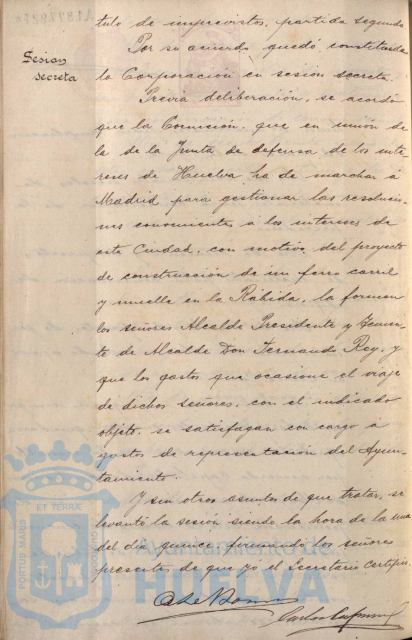 tulo de imprevistos, partida segunda
Por su acuerdo quedó constituida
la Corporación en sesión secreta.
Sesion
secreta
Previa deliberación, se acordó
que la Comisión, que en unión de
la de la Junta de defensa de los inte
reses de Huelva ha de marchar á
Madrid para gestionar las resolucio
nes convenientes á los intereses de
esta Ciudad, con motivo del proyecto
de construcción de un ferro carril
y muelle en la Rábida, la formen
los señores Alcalde Presidente y Tenien
te de Alcalde Don Fernando Rey, y
que los gastos que ocasione el viaje
de dichos señores, con el indicado
objeto, se satisfagan con cargo á
gastos de representación del Ayun
tamiento.
Y sin otros asuntos de que tratar, se
levantó la sesión siendo la hora de la una
del día quince, firmando los señores
presentes de que yó el Secretario certifico.
PORTUS MARIS
ET TERRÆ
CUSTODIO
Ayuntamiento de
HUELVA